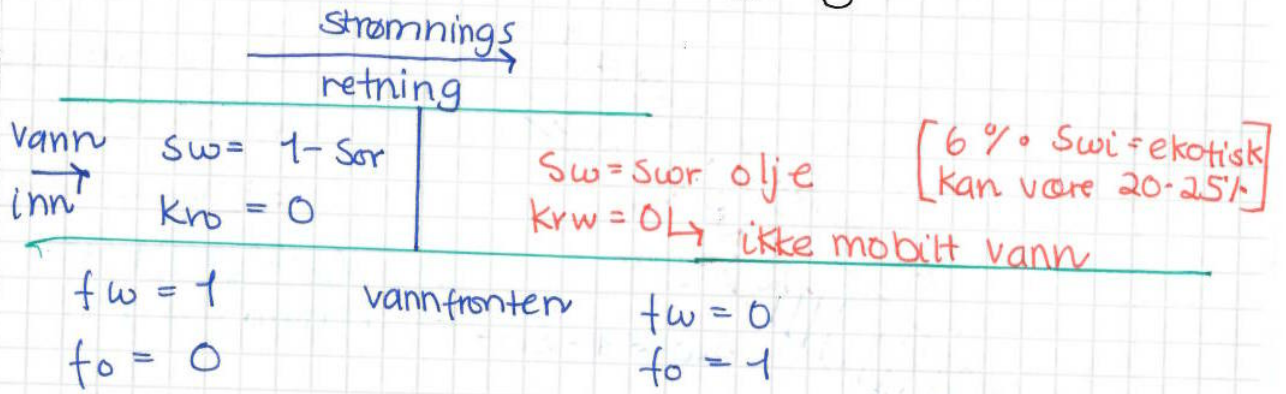 strømnings
retning
vann
inn
sw = 1 - Sor
kro = 0
Sw = swor olje
krw = 0 ↳ ikke mobilt vann
[6 % Swi = ekofisk
kan være 20-25%]
fw = 1
fo = 0
vannfronten
fw = 0
fo = 1